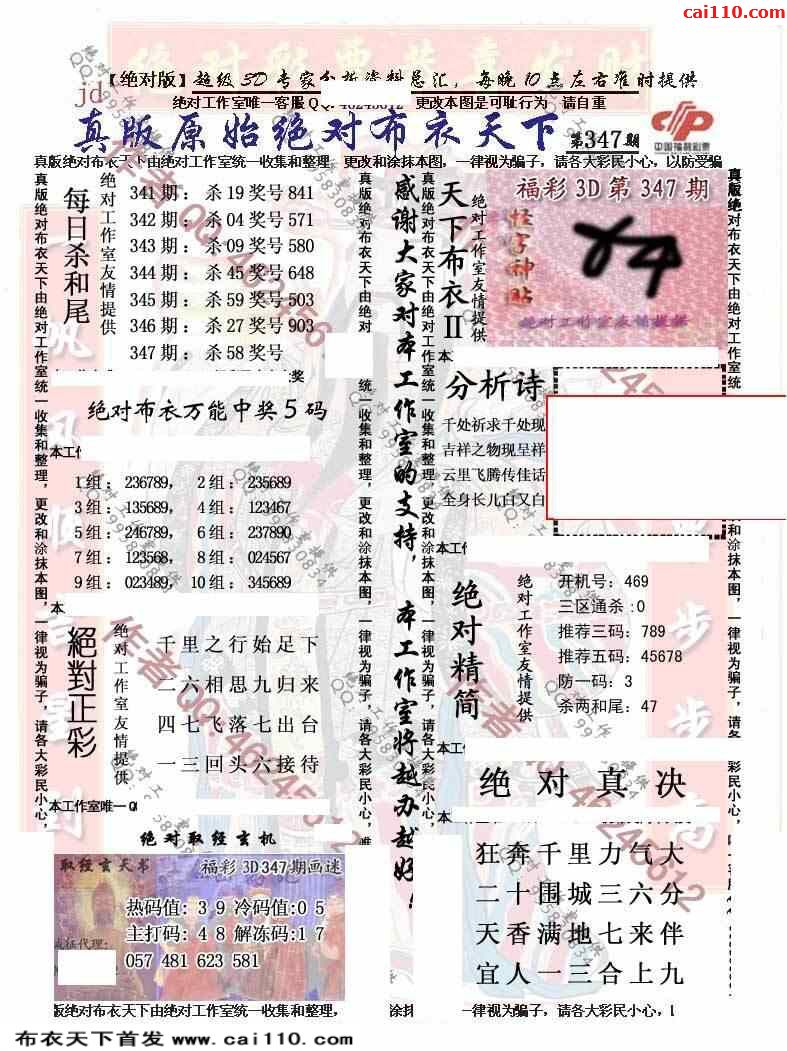 cai110.com
【绝对版】超级3D专家分析资料总汇，每晚10点左右准时提供
jd
绝对工作室唯一客服QQ: 46245612 更改本图是可耻行为 请自重
真版原始绝对布衣天下 第347期
中国福利彩票
真版绝对布衣天下由绝对工作室统一收集和整理，更改和涂抹本图，一律视为骗子，请各大彩民小心，以防受骗
每日杀和尾
绝对工作室友情提供
341期：杀19奖号841
342期：杀04奖号571
343期：杀09奖号580
344期：杀45奖号648
345期：杀59奖号503
346期：杀27奖号903
347期：杀58奖号
绝对布衣万能中奖5码
1组：236789， 2组：235689
3组：135689， 4组：123467
5组：246789， 6组：237890
7组：123568， 8组：024567
9组：023489， 10组：345689
絕對正彩
绝对工作室友情提供
千里之行始足下
二六相思九归来
四七飞落七出台
一三回头六接待
本工作室唯一Q
绝对取经玄机
取经玄天书 福彩3D347期画迷
热码值：39冷码值:05
主打码：48解冻码:17
诚征代理：
057 481 623 581
感谢大家对本工作室的支持，本工作室将越办越好！
天下布衣II
绝对工作室友情提供
福彩3D第347期
怪字神贴
绝对工作室友情提供
分析诗
千处祈求千处现
吉祥之物现呈祥
云里飞腾传佳话
全身长儿白又白
绝对精简
绝对工作室友情提供
开机号：469
三区通杀:0
推荐三码：789
推荐五码：45678
防一码：3
杀两和尾：47
绝对真决
狂奔千里力气大
二十围城三六分
天香满地七来伴
宜人一三合上九
版绝对布衣天下由绝对工作室统一收集和整理，
涂抹
一律视为骗子，请各大彩民小心，
布衣天下首发 www.cai110.com